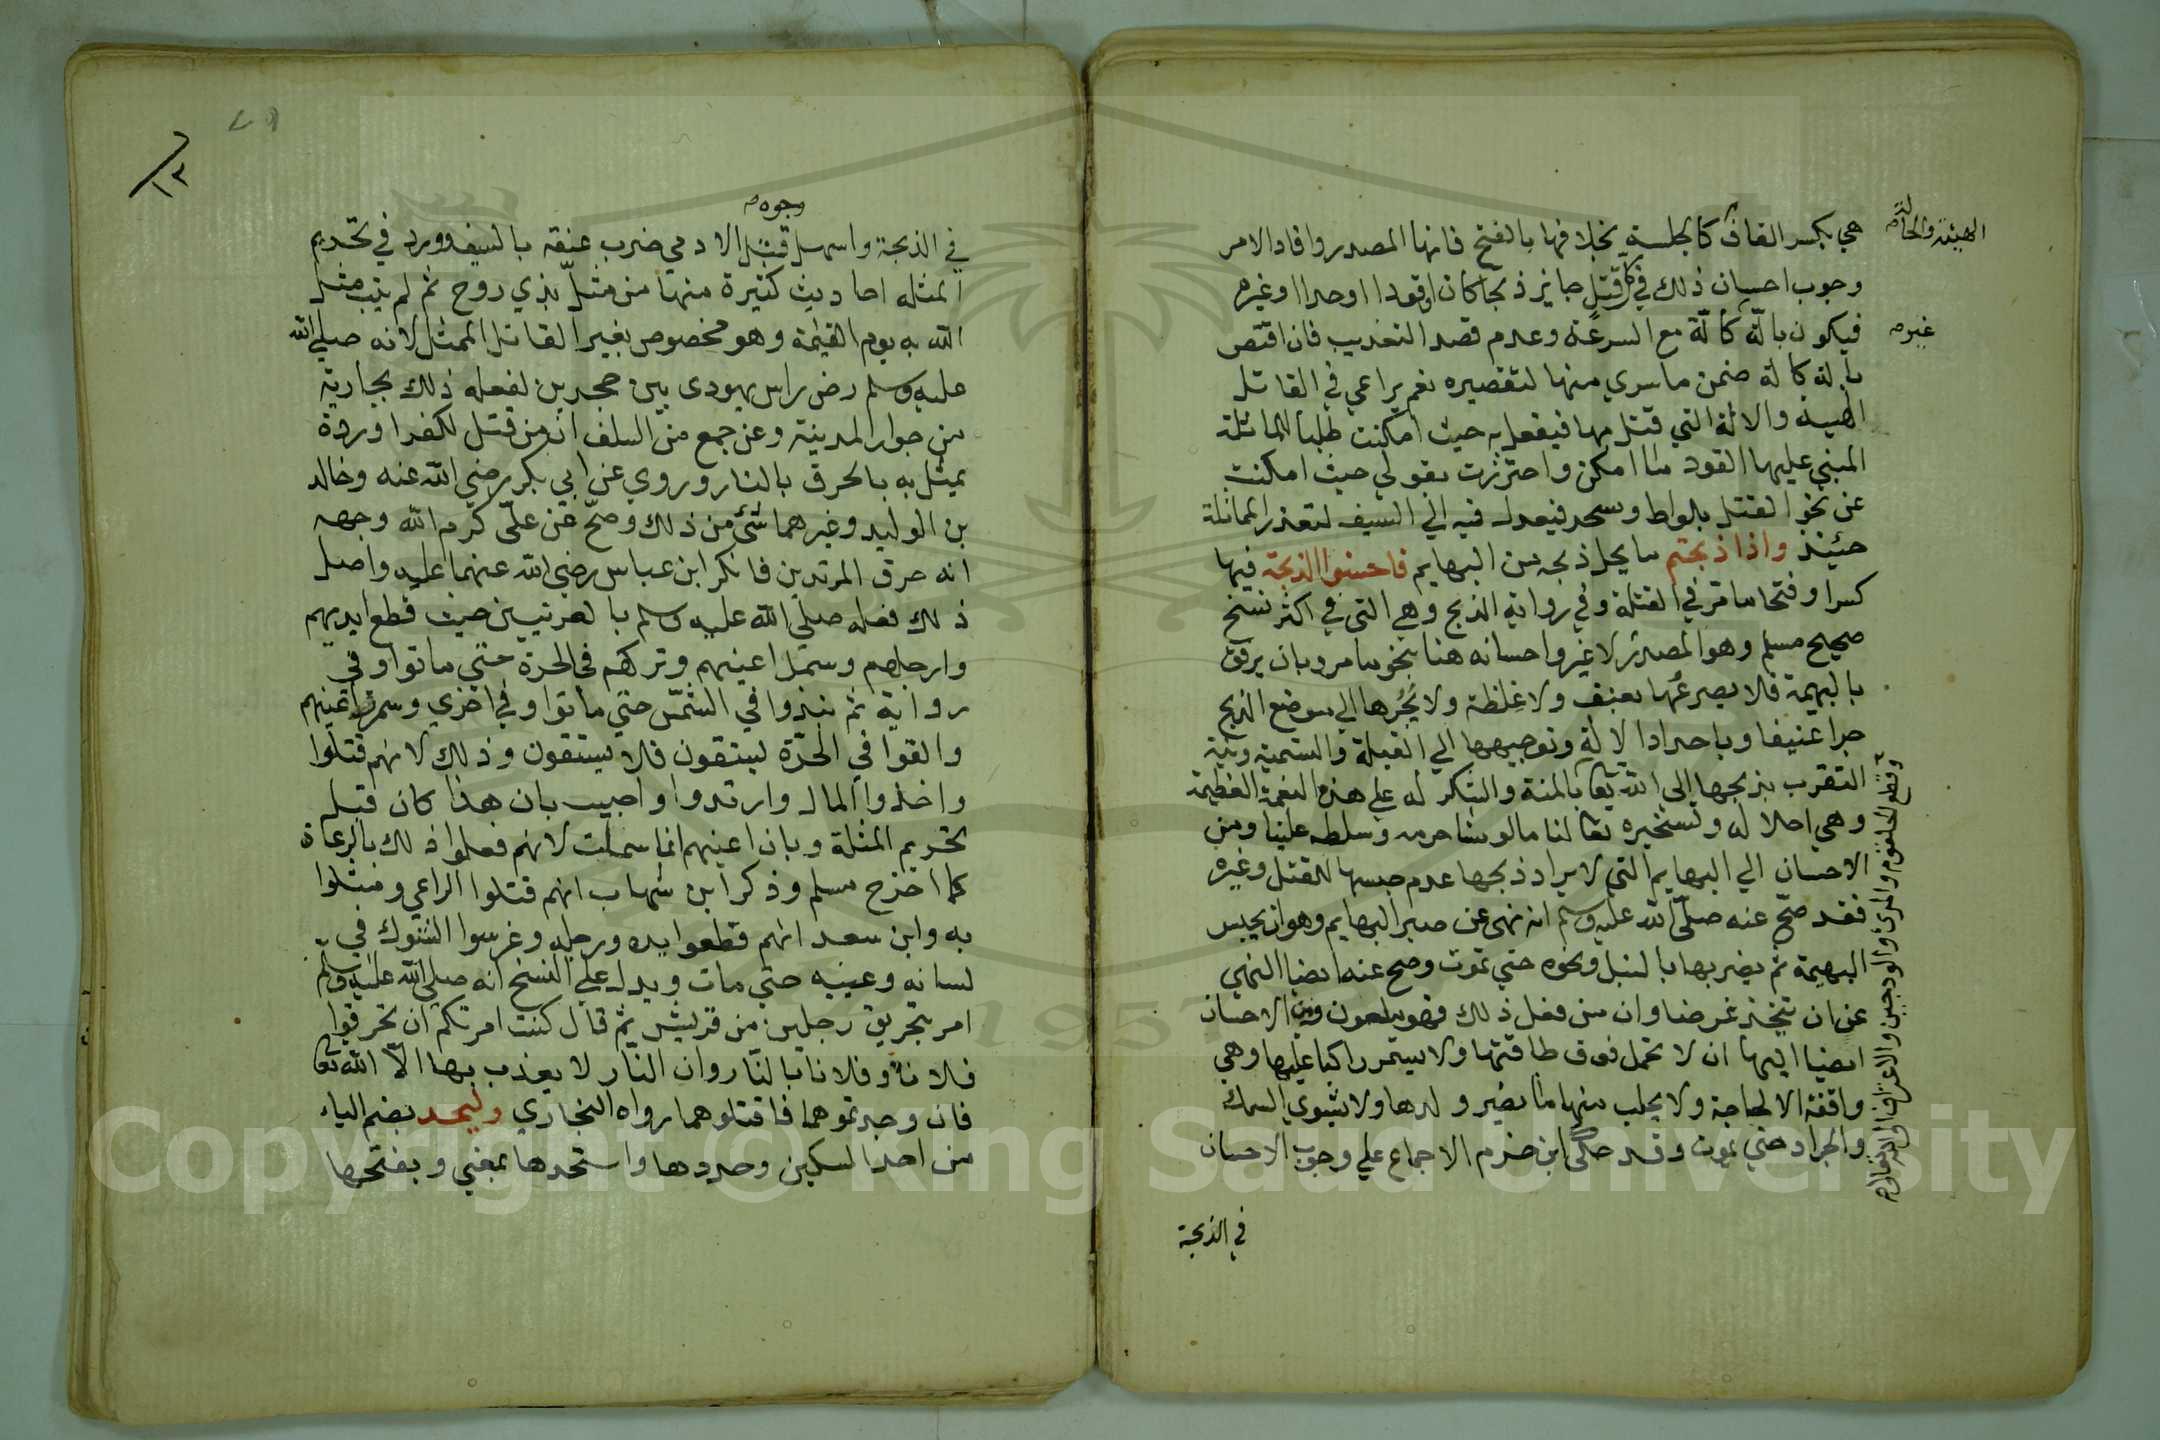 هي بكسر القاف كالجلسة بخلافها بالفتح فانها المصدر وافاد الامر
الهيئة والحالة صح
وجوب احسان ذلك في كل قتل جايز ذبحا كان او قودا او حدا او غيره
فيكون بالة كالة مع السرعة وعدم قصد التعذيب فان اقتص
غير صح
بالة كالة ضمن ما سري منها لتقصيره نعم يراعي في القاتل
الهيئة والالة التي قتل بها فيفعل به حيث امكنت طلبا للماثلة
المبني عليها القود ما امكن واحترزت بقولي حيث امكنت
عن نحو القتل بلواط وسحر فيعدل فيه الي السيف لتعذر المماثلة
حينئذ واذا ذبحتم ما يحل ذبحه من البهايم فاحسنوا الذبحة فيها
كسرا وفتحا ما مر في القتلة وفي رواية الذبح وهي التي في اكثر نسخ
صحيح مسلم وهو المصدر لا غير واحسانه هنا بنحو ما مر وبان يرفق
بالبهيمة فلا يصرعها بعنف ولا غلظة ولا يجرها الي موضع الذبح
جرا عنيفا وباحداد الالة وتوجيهها الي القبلة والتسمية ونية
التقرب بذبحها الي الله تعا بالمنة والشكر له علي هذه النعمة العظيمة
وهي احلاله وتسخيره تعا لنا مالو شا حرمه وسلطه علينا ومن
وقطع الحلقوم والمري والودجين والاعتراف
الاحسان الي البهايم التي لا يراد ذبحها عدم حبسها للقتل وغيره
فقد صح عنه صلى الله عليه وسلم انه نهى عن صبر البهايم وهو ان يحبس
البهيمة ثم يضربها بالنبل ونحوه حتي تموت وصح عنه ايضا النهي
عن ان تتخذ غرضا وان من فعل ذلك فهو ملعون ومن الاحسان
ايضا اليها ان لا تحمل فوق طاقتها ولا يستمر راكبا عليها وهي
واقفة الا لحاجة ولا يحلب منها ما يضر ولدها ولا يشوي السمك
والجراد حتي يموت وقد حكى ابن حزم الاجماع علي وجوب الاحسان
في الذبحة
١٣
وجوه صح
في الذبحة واسهل قتل الادمي ضرب عنقه بالسيف وورد في تحريم
المثله احاديث كثيرة منها من مثل بذي روح ثم لم يتب مثل
الله به يوم القيمة وهو مخصوص بغير القاتل الممثل لانه صلي الله
عليه وسلم رض راس يهودى بين حجرين لفعله ذلك بجارية
من جوار المدينة وعن جمع من السلف انه من قتل لكفر او ردة
يمثل به بالحرق بالنار وروي عن ابي بكر رضي الله عنه وخالد
بن الوليد وغيرهما شئ من ذلك وصح عن علي كرم الله وجهه
انه حرق المرتدين فانكر ابن عباس رضي الله عنهما عليه واصل
ذلك فعله صلي الله عليه وسلم بالعرنيين حيث قطع ايديهم
وارجلهم وسمل اعينهم وتركهم في الحرة حتي ماتوا وفي
رواية ثم نبذوا في الشمس حتي ماتوا وفي اخري وسمرت اعينهم
والقوا في الحرة يستقون فلا يستقون وذلك لانهم قتلوا
واخذوا المال وارتدوا واجيب بان هذا كان قبل
تحريم المثلة وبان اعينهم انما سملت لانهم فعلوا ذلك بالرعاة
كما اخرج مسلم وذكر ابن شهاب انهم قتلوا الراعي ومثلوا
به وابن سعد انهم قطعوا يده ورجله وغرسوا الشوك في
لسانه وعينيه حتي مات ويدل علي النسخ انه صلي الله عليه وسلم
امر بتحريق رجلين من قريش ثم قال كنت امرتكم ان تحرقوا
فلانا وفلانا بالنار وان النار لا يعذب بها الا الله تعا
فان وجدتموهما فاقتلوهما رواه البخاري وليحد بضم الياء
من احد السكين وحددها واستحدها بمعني وبفتحها
Copyright © King Saud University
1957